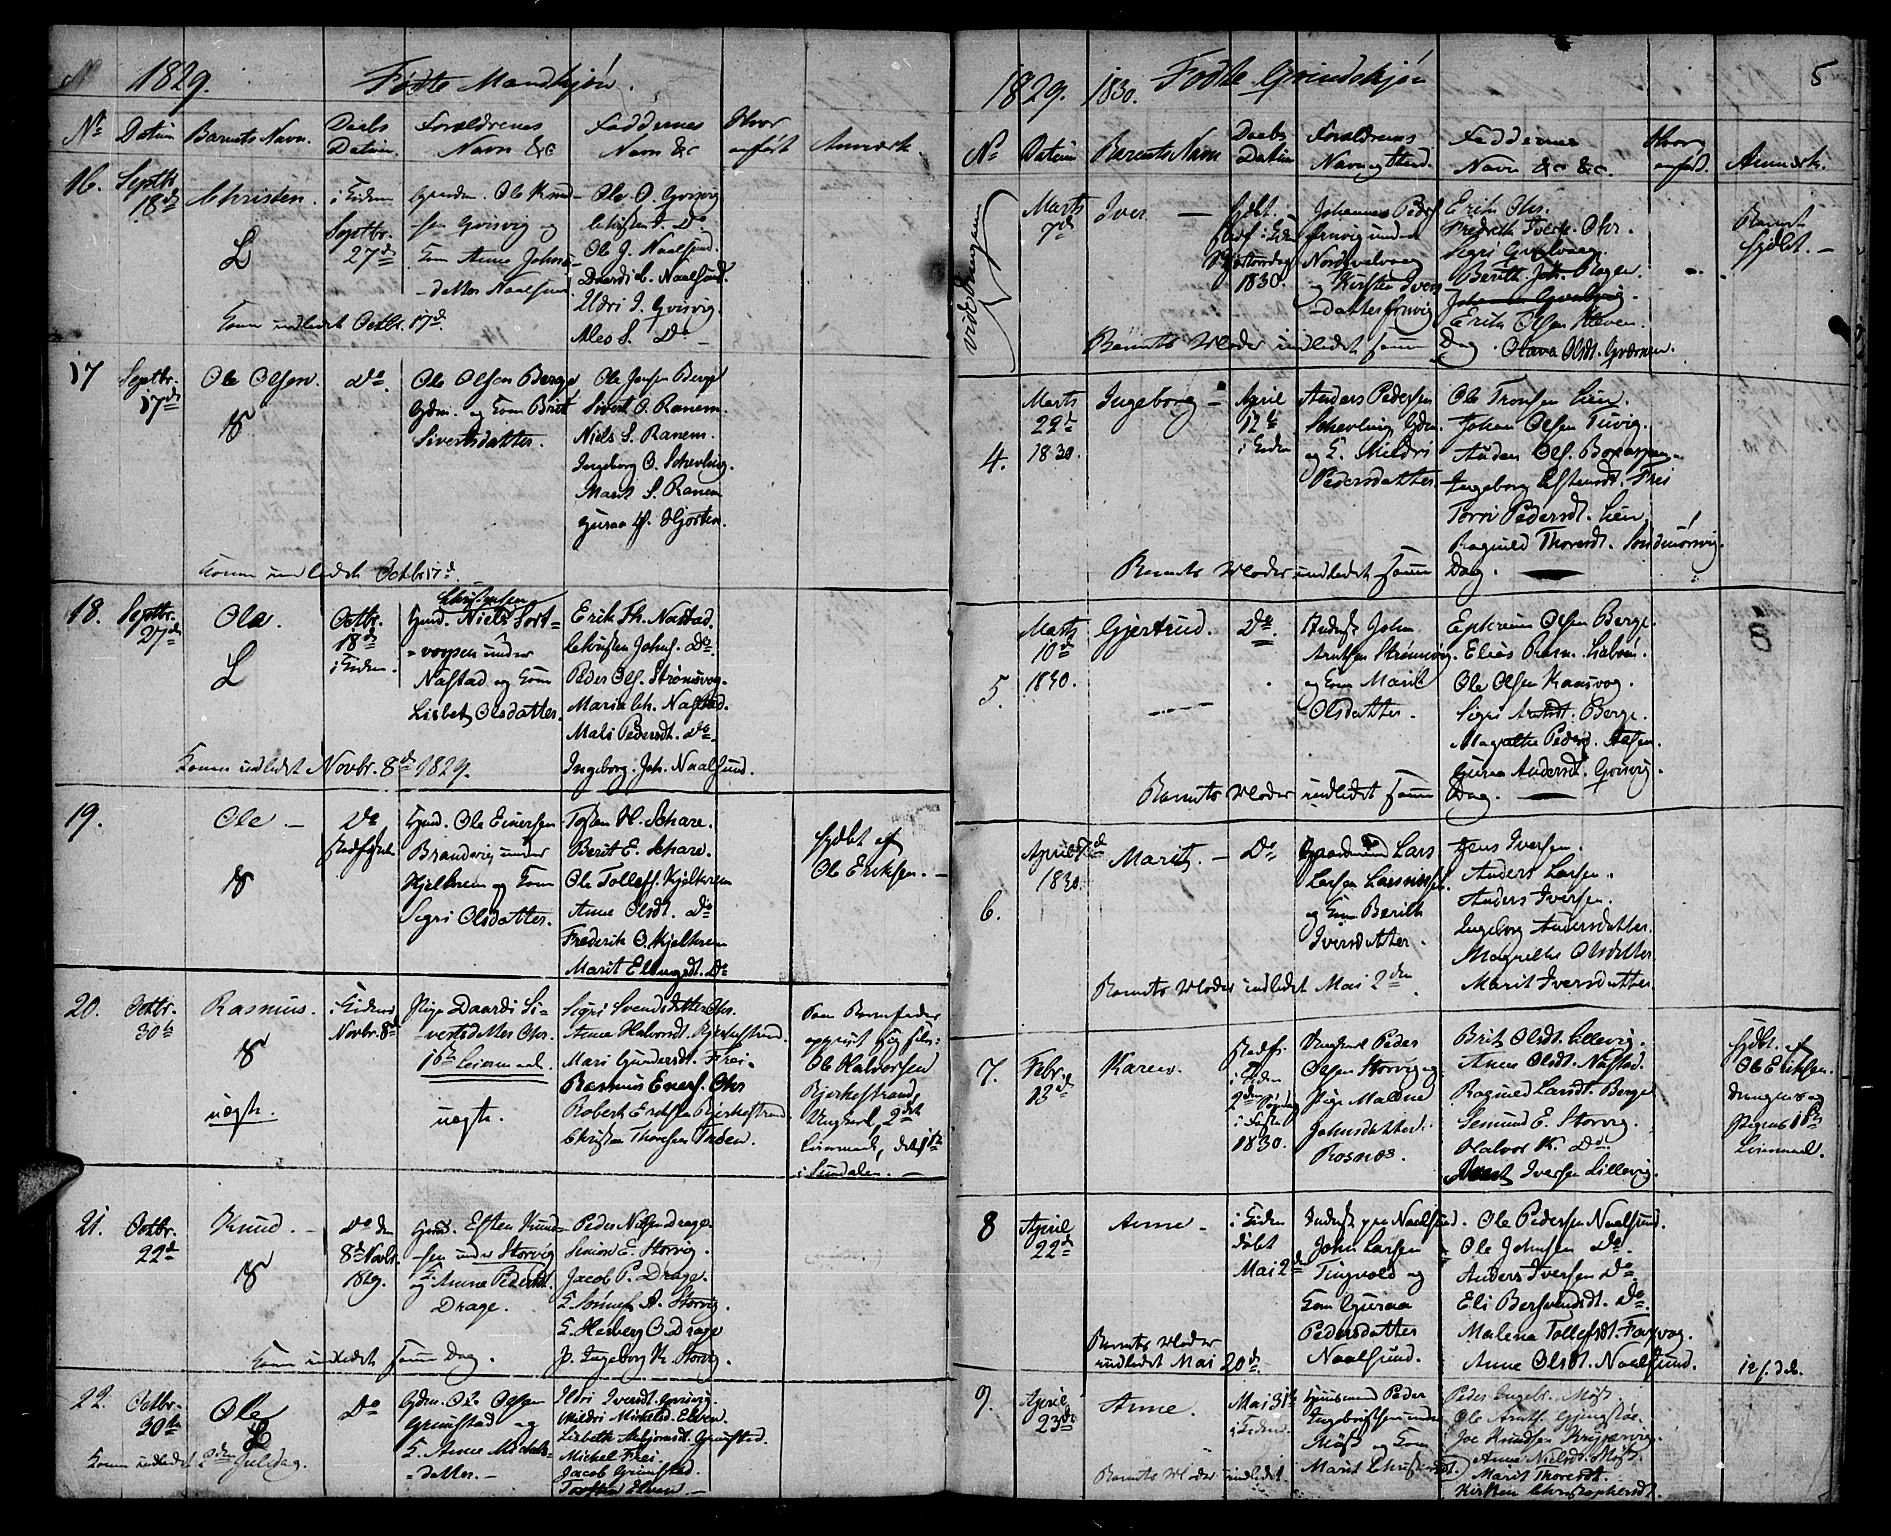 1829.
Fødte Mandkjøn.
No Datum Barnets Navn. Daabs Datum. Forældrenes Navn &c Faddernes Navn &c Hvor anført Anmærk.
16. Septbr. 18de
Christen.
L
i Eiden Septbr. 27de
Ole Knud-
sen Gvisvig og
Kone Anne Johns-
datter Naalsund
Ole O. Gvisvig
Christen I. Do
Ole J. Naalsund.
Daardi C. Naalsund.
Ildri I. Gvisvig.
Ales S. Do
Konen indledet Octbr. 17de
17 Septbr. 17de
Ole Olsen.
S
Do.
Ole Olsen Berge
Gdm. og Kone Brit
Sivertsdatter.
Ole Jensen Berge
Sivert O. Ranem.
Niels S. Ranem.
Ingeborg O. Schevling.
Marit S. Ranem
Guraa H. Hjorten.
Konen indledet Octbr 17de
18. Septbr. 27de
Ole.
L
Octbr. 18de i Eiden.
Christensen
Huusm. Niels Sort-
vogsen under
Nastad og Kone
Lisbet Olsdatter.
Erik Th. Nastad.
Christen Johns. Do.
Peder Ols. Strømsvog.
Maria Ch. Nastad.
Mali Pedersdt. Do.
Ingeborg Joh. Naalsund.
Konen indledet Novbr. 8de 1829.
19.
Ole
S
Do
stadfæstet
Huusm. Ole Einersen
Brandsvig under
Kjelkrem og Kone
Segri Olsdatter.
Tosten H. Schare.
Berit E. Schare.
Ole Tollefs. Kjelkrem
Anne Olsdt. Do
Frederik O. Kjelkrem
Marit Ellingsdt. Do
hjdbt af
Ole Eriksen.
20. Octbr. 30te
Rasmus.
S
uægte.
i Eiden
Novbr. 8de
Pige Daardi Si-
vertsdatter Ohr.
1ste Leiermaal.
uægte.
Sigri Svendsdatter Ohr.
Anne Halvorsdt. Bjerkestrand.
Mari Gundersdt. Frei.
Rasmus Eners. Ohr
Robert Ericksen Bjerkestrand
Christen Thoresen Inden.
Som Barnefader
opgivet sig selv:
Ole Halvorsen
Bjerkestrand,
Ungkarl, 2det
Leiermaal, det 1ste
i Sundalen.
21. Octbr. 22de
Knud.
S
Do den
8de Novbr.
1829.
Huusm. Esten Knud-
sen under Storvig
og K. Anne Pedersdt.
Drage.
Peder Nilsen Drage
Simon E. Storvig.
Jacob P. Drage.
K. Sønnef A. Storvig.
K. Herberg O. Drage
P. Ingeborg K. Storvig.
Konen indledet samme Dag.
22. Octbr. 30te
Ole
L
Do
Gdm. Ole Olsen
Grimstad og
K. Anne Michels-
datter.
Ildri Iversdt. Gvisvig.
Mildri Michelsd. Elven.
Lisbeth Asbjørnsdt. Grimstad.
Michel Frei.
Jacob Grimstad.
Torsten Elven
Konen indledet 2den Juledag.
1829. 1830. Fødte Qvindekjøn
5
No Datum Barnets Navn Daabs Datum Forældrenes Navn og Stand. Faddernes Navn &c &c. Hvor anført. Anmærk.
vide Drengene
Marts 7de
Iver.
hjdbt.
stadf. i Eiden
Skjærtorsdag
1830.
Johannes Peders
Ernvig under
Nordvalvaag
og Kirsten Ivers-
datter Ernvig
Erik Ohr.
Fredrik Iversen Ohr.
Segri Gvalvaag.
Berith Joh. Bogen.
Erik Olsen Kleven.
Olava Olsdt. Gværnen.
Barnet
hjdbt.
Barnets Moder indledet samme Dag.
4. Marts 29de 1830.
Ingeborg
April 12te i Eiden
Anders Pedersen
Schevling Gdm.
og K. Mildri
Pedersdatter.
Ole Tronsen Lien.
Johan Olsen Tiovig.
Ingeborg Estensdt. Frei
Torri Pedersdt. Lien
Ragnild Thoresdt. Søndmørsvig.
Barnets Moder indledet samme Dag.
5. Marts 10de 1830.
Gjertrud.
Do.
Inderst John
Arntsen Strømsvig.
og Kone Marit
Olsdatter.
Ephraim Olsen Berge.
Elias Rasm. Labøn.
Ole Olsen Kaasvog.
Sigri Arntsdt. Berge.
Magrethe Pedersd. Aasen.
Guraa Andersdt. Gvisvig.
Barnets Moder indledet samme Dag.
6. April 7de 1830.
Marit.
Do
Lars
Larsen
og Kone Berith
Iversdatter.
Jens Iversen.
Anders Larsen.
Anders Iversen.
Ingeborg Andersdatter.
Magrethe Olsdatter
Marit Iversdatter.
Barnets Moder indledet Mai 2den
7. Febr. 13de
Karen.
Stadf.
i Eiden
2den Søndag
i Faste
1830.
Ungkarl Peder
Olsen Storvig og
Pige Malene
Johnsdatter
Rosnæs.
Brit Olsdt. Lillevig.
Anne Olsdt. Nastad.
Ragnild Larsdt. Berge
Semund E. Storvig.
Halvor K. Do.
Iversen Lillevig.
hjdbt. af
Ole Eriksen.
Drengens og
Pigens 1ste
Leiermaal.
8 April 22de
Anne
i Eiden
døbt
Mai 2de
Inderst paa Naalsund.
John Larsen
Tingvold og
Kone Guraa
Pedersdatter
Naalsund.
Ole Pedersen Naalsund.
Ole Johnsen Do.
Anders Iversen Do.
Eli Bersvendsdt. Do.
Malena Tollefsdt. Farvog.
Anne Olsdt. Naalsund.
Barnets Moder
indledet Mai 20de
9. April 23de
Anne.
Mai 31te
i Eiden.
Huusmand Peder
Ingebrigtsen under
Møst og Kone
Marit Christensdt.
Peder Ingebr. Møst.
Ole Arnts. Gjengstøe.
Joe Knudsen
Anne Nielsdt. Møst.
Marit Thoresdt.
Kirsten Christophersdt.
Barnets Moder indledet